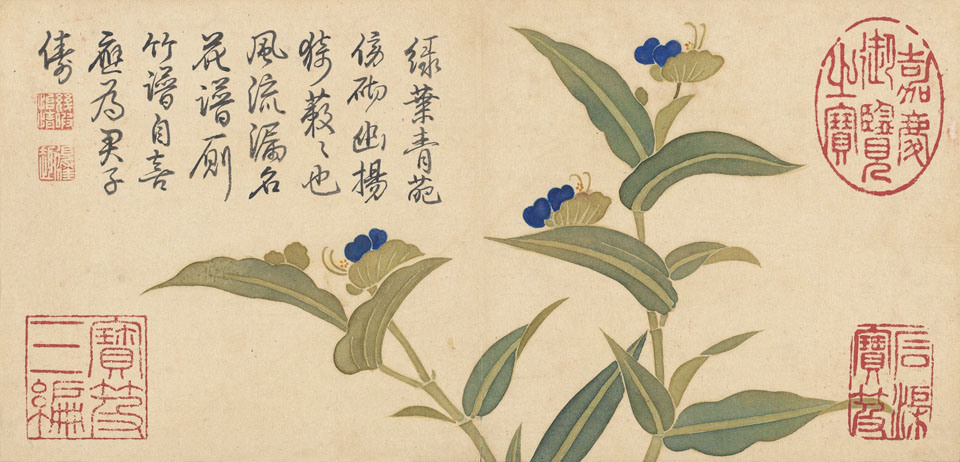 嘉慶
御覽
之寶
石渠
寶笈
綠葉青葩
傍砌幽揚
猗蔌〻也
風流漏名
花譜厠
竹譜自喜
應為君子
儔
寶笈
三編